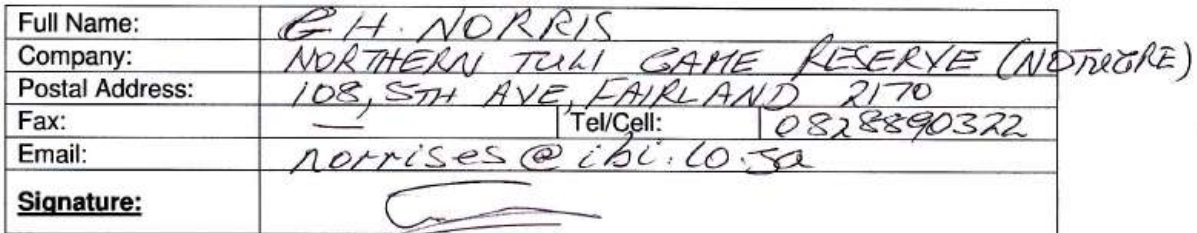 Full Name: G.H. NORRIS
Company: NORTHERN TULI GAME RESERVE (NOTUGRE)
Postal Address: 108, 5TH AVE, FAIRLAND 2170
Fax: — Tel/Cell: 0828890322
Email: norrises@ibi.co.za
Signature: